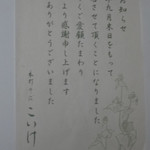 お知らせ
九月末日をもって
させて頂くことになりました
くご愛顧たまわり
より感謝申し上げます
ありがとうございました
こいけ